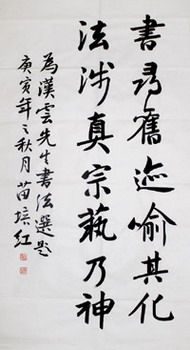 書尋舊迹喻其化
法涉真宗藝乃神
為漢雲先生書法選題
庚寅年之秋月苗培红